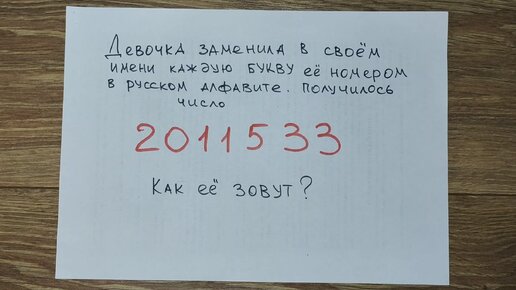 Девочка заменила в своём
имени каждую букву её номером
в русском алфавите. Получилось
число
2011533
Как её зовут?